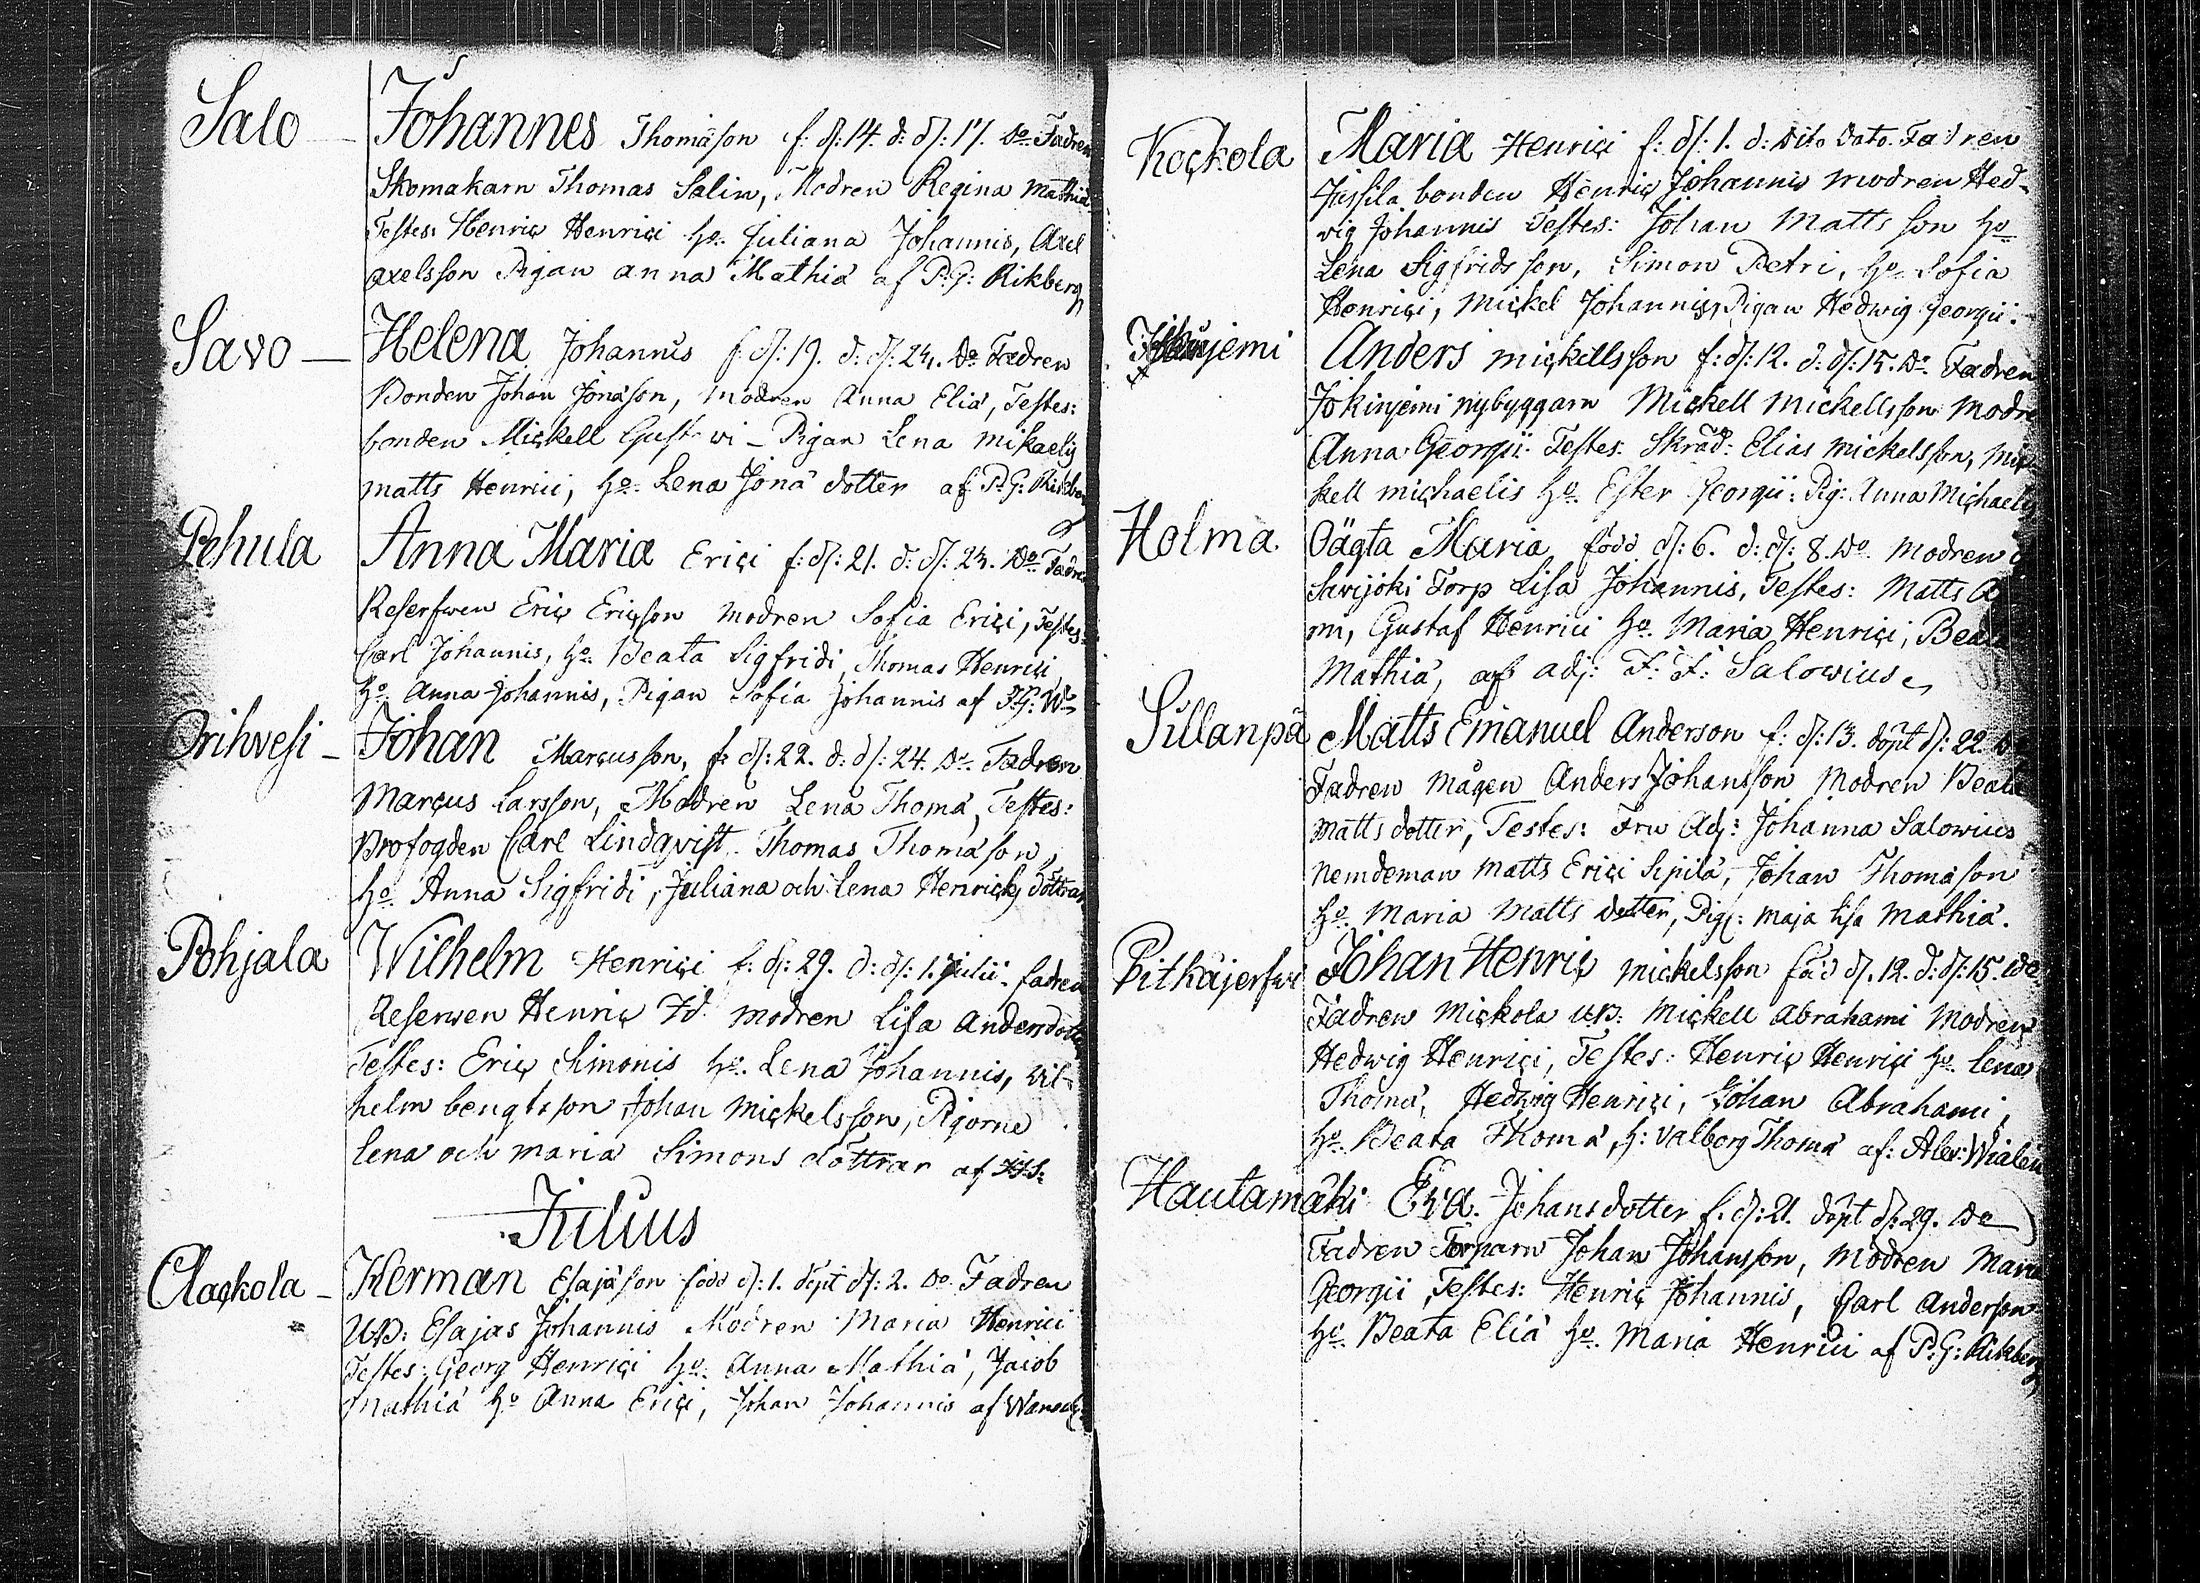 Salo — Johannes Thomäson f: d/: 14. d: d/: 17. Do. Fadren
Skomakarn Thomas Salin, Modren Regina Mathiæ
Testes: Henric Henrici ho. Juliana Johannis, Axel
Axelsson Pigan Anna Mathiä af P: G: Rikberg
Savo — Helena Johannis f: d/: 19. d: d/: 24. Do Fadren
Bonden Johan Jonäson, Modren Anna Eliä, Testes:
bonden Mickell Gustawi — Pigan Lena Mikaelis
Matts Henrici, ho. Lena Jonä dotter af P: G: Rikberg
Pehula Anna Maria Erici f: d/: 21. d: d/: 24. Do Fadren
Reserfwen Eric Ericson Modren Sofia Erici, Testes:
Carl Johannis, ho. Beata Sigfridi, Thomas Henrici
ho. Anna Johannis, Pigan Sofia Johannis af
Orihvesi — Johan Marcusson, f: d/: 22. d: d/: 24. Do. Fadren
Marcus Larsson, Modren Lena Thomä, Testes:
Brofogden Carl Lindqvist. Thomas Thomäson,
ho. Anna Sigfridi, Juliana och Lena Henricks döttrar
Pohjala Wilhelm Henrici f: d/: 29. d: d/: 1. Julii. fadren
Reserwen Henric Modren Lisa Andersdotter
Testes: Eric Simonis ho. Lena Johannis, Wil-
helm bengtsson Johan Mickelsson, Pigorne
Lena och Maria Simons döttrar af
Julius
Clackola — Herman Esajäson född d/: 1. döpt d/: 2. Do. Fadren
UB: Esajas Johannis Modren Maria Henrici
Testes: Georg Henrici ho. Anna Mathiä, Jacob
Mathiä ho Anna Erici, Johan Johannis af
Kockola Maria Henrici f: d/: 1. d: Dito Dato. Fadren
Jussila bonden Henric Johannis Modren Hed-
wig Johannis Testes: Johan Matts son ho
Lena Sigfrids son, Simon Petri, ho. Sofia
Henrici, Mickel Johannis, Pigan Hedwig Georgii.
Anders Mickellsson f: d/: 12. d: d/: 15. Do. Fadren
Jokinjemi nybyggarn Mickell Mickellsson Modren
Anna Georgii Testes. Skräd: Elias Mickelsson, Mic-
kell Michaelis ho. Ester Georgii: Pig: Anna Michaelis
Holma Oägta Maria född d/: 6. d: d/: 8. Do. Modren
Sawijoki Torp Lisa Johannis, Testes: Matts
mi, Gustaf Henrici ho. Maria Henrici, Beata
Mathiä, af adj: F: F: Salowius
Sillanpä Matts Emanuel Anderson f: d/: 13. döpt d/: 22. Do
Fadren Mågen Anders Johansson Modren Beata
Matts dotter, Testes: Fru Adj: Johanna Salowius
Nemdeman Matts Erici Sipilä, Johan Thomäson
ho. Maria Matts dotter, Pig: Maja Lisa Mathiä.
Pitkäjerfwi Johan Henric Mickelsson föd d/. 12. d: d/: 15. Do
Fadren Mickola UB: Mickell Abrahami Modren
Hedwig Henrici, Testes: Henric Henrici ho. Lena
Thomä, Hedwig Henrici, Johan Abrahami,
ho. Beata Thomä, h: Valborg Thomä af: Alex: Wialén
Hautamäki Eva. Johansdotter f. d/: 21. döpt d/: 29. Do
Fadren Torparn Johan Johansson, Modren Maria
Georgii, Testes: Henric Johannis, Carl Anderson
ho. Beata Eliä ho. Maria Henrici af P: G: Rikberg